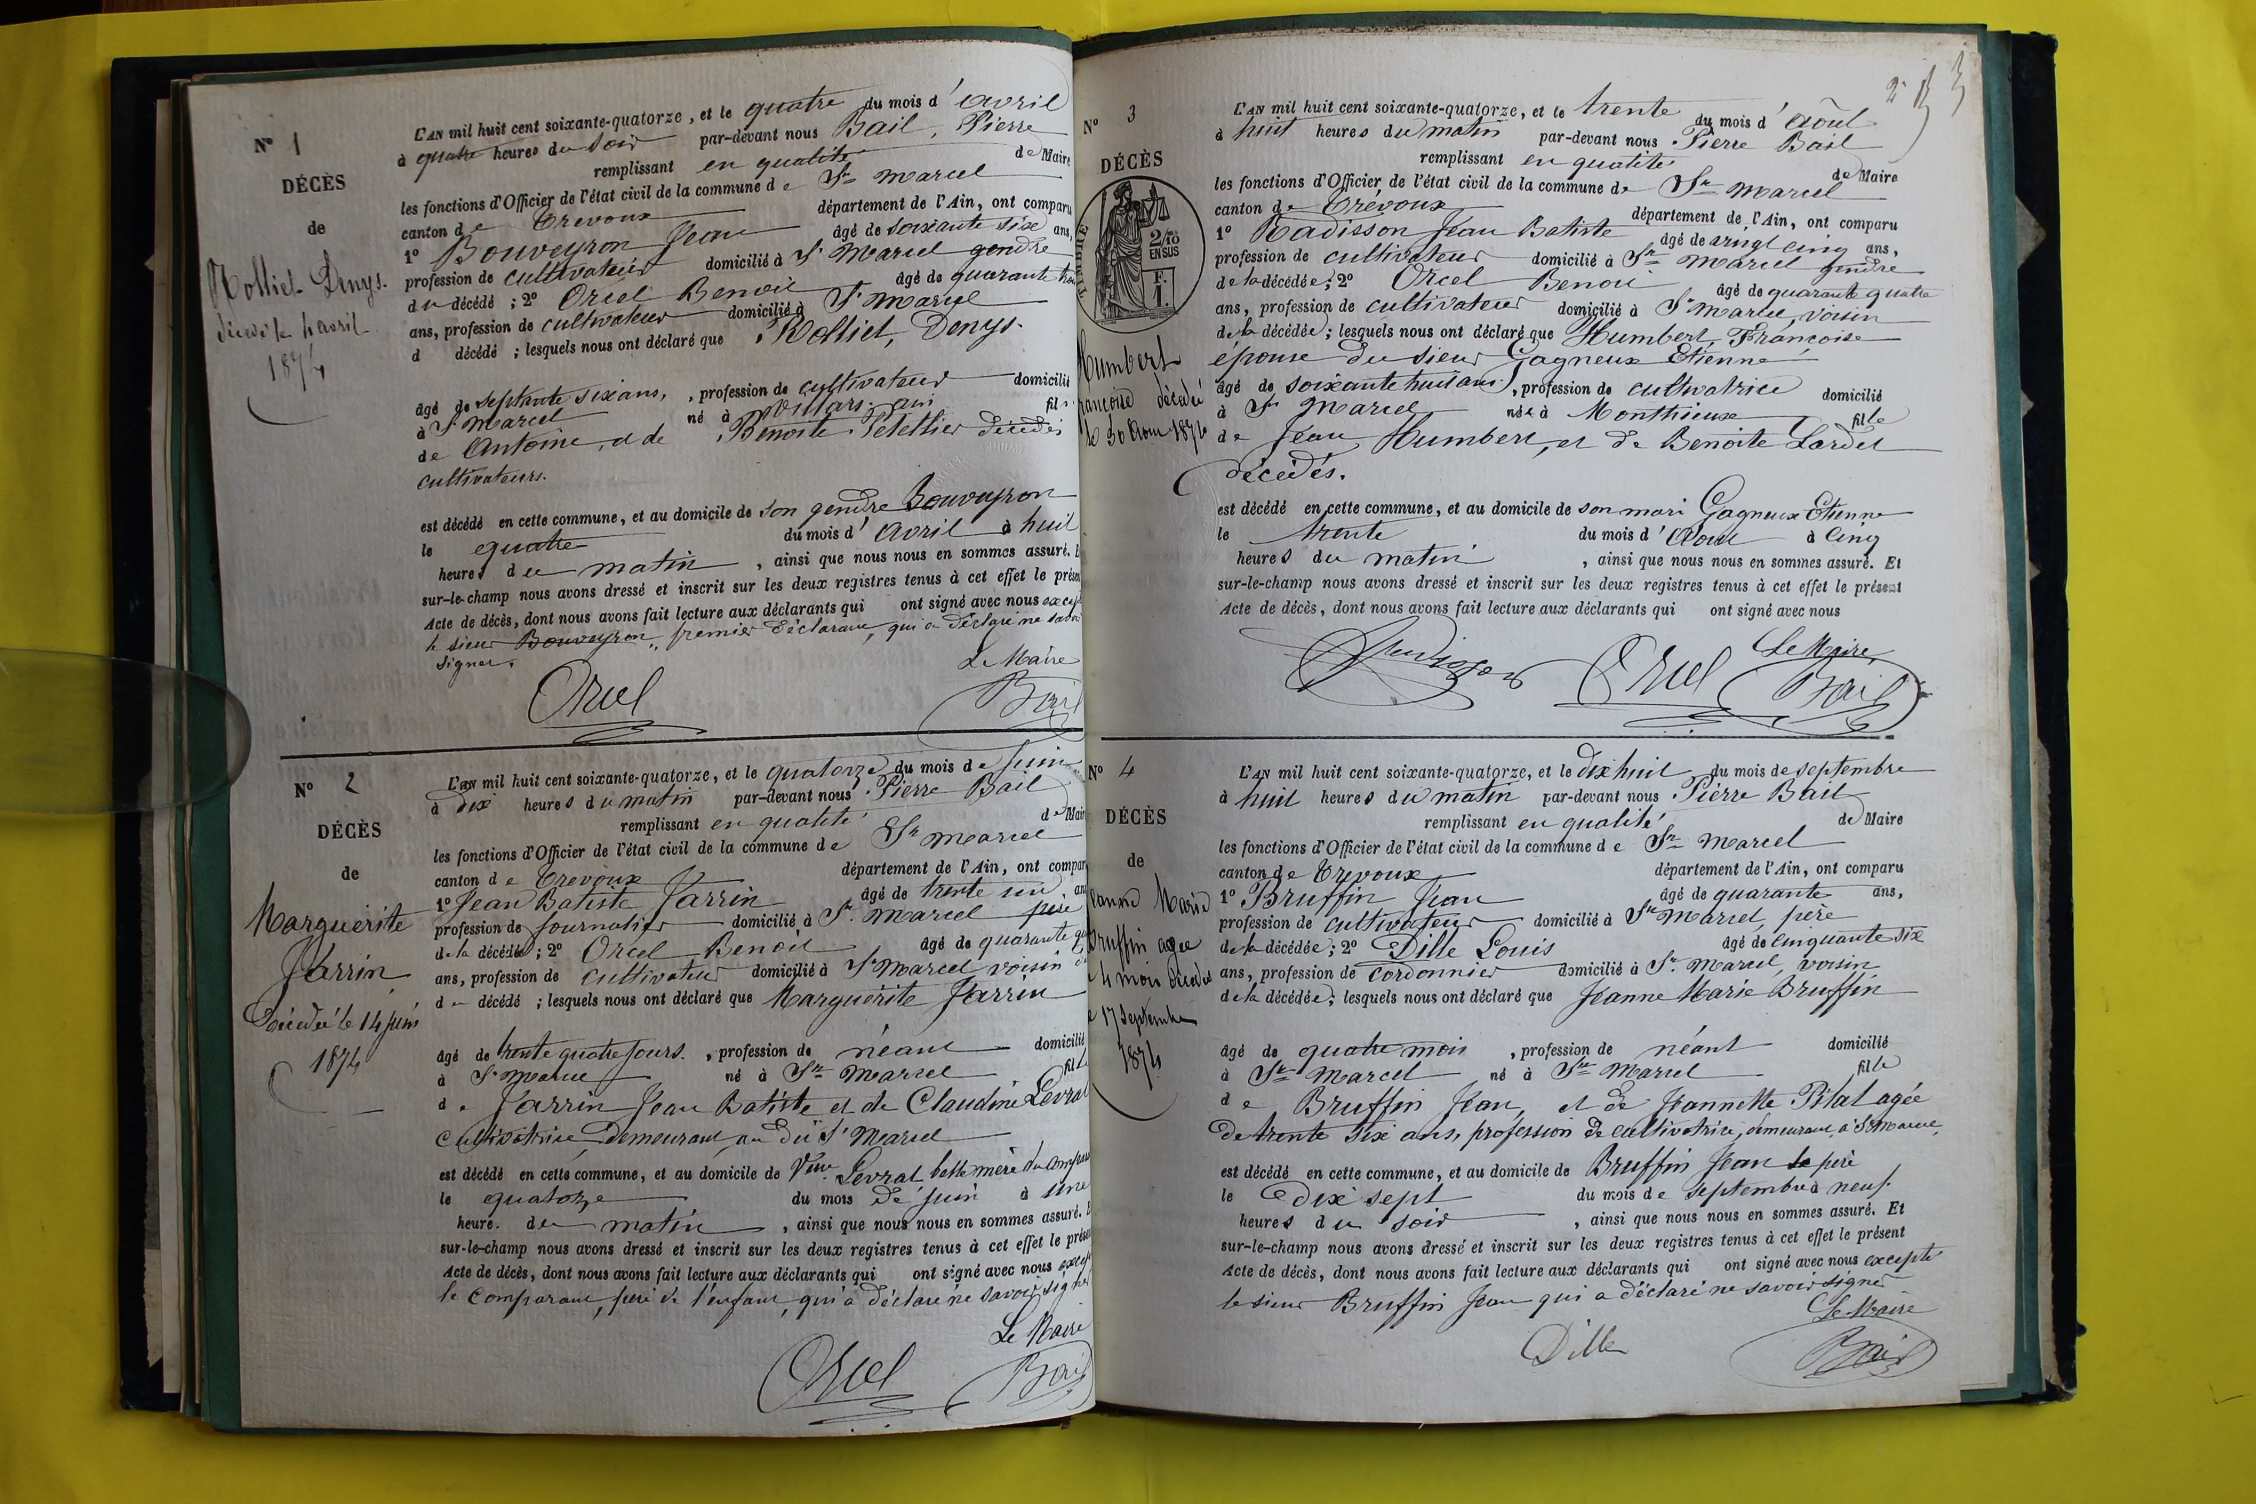 N° 1
DÉCÈS
de
Rolliet Denys.
décédé le 4 avril
1874
L'AN mil huit cent soixante-quatorze, et le quatre du mois d'avril
à quatre heures du soir par-devant nous Bail, Pierre
remplissant en qualité de Maire
les fonctions d'Officier de l'état civil de la commune de St Marcel
canton de Trévoux département de l'Ain, ont comparu
1° Bouveyron Jean âgé de soixante six ans,
profession de cultivateur domicilié à St Marcel gendre
du décédé ; 2° Orcel Benoit âgé de quarante trois
ans, profession de cultivateur domicilié à St Marcel
d décédé ; lesquels nous ont déclaré que Rolliet, Denys.
âgé de septante six ans, , profession de cultivateur domicilié
à St Marcel né à Villars. ain fils
de Antoine, et de Benoite Peleltier décédés
cultivateurs.
est décédé en cette commune, et au domicile de son gendre Bouveyron
le quatre du mois d'avril à huit
heures du matin , ainsi que nous nous en sommes assuré. E
sur-le-champ nous avons dressé et inscrit sur les deux registres tenus à cet effet le présen
Acte de décès, dont nous avons fait lecture aux déclarants qui ont signé avec nous except
le sieur Bouveyron, premier déclarant, qui a déclaré ne savoir
signer.
Le Maire
Orcel Bail
N° 2
DÉCÈS
de
Marguérite
Jarrin
Décédée le 14 juin
1874
L'AN mil huit cent soixante-quatorze, et le quatorze du mois de juin
à dix heures du matin par-devant nous Pierre Bail
remplissant en qualité de Mair
les fonctions d'Officier de l'état civil de la commune de St Marcel
canton de Trevoux département de l'Ain, ont compar
1° Jean Batiste Jarrin âgé de trente un an
profession de journalier domicilié à St Marcel père
de la décédée ; 2° Orcel Benoit âgé de quarante qu
ans, profession de cultivateur domicilié à St Marcel voisin de
d décédé ; lesquels nous ont déclaré que Marguérite Jarrin
âgé de trente quatre jours. , profession de néant domicilié
à St Marcel né à St Marcel fille
de Jarrin Jean Batiste et de Claudine Levrat
cultivatrice demeurant au dit St Marcel
est décédé en cette commune, et au domicile de Veuve Levrat belle mère du compara
le quatorze du mois de juin à une
heure. du matin , ainsi que nous nous en sommes assuré. E
sur-le-champ nous avons dressé et inscrit sur les deux registres tenus à cet effet le présen
Acte de décès, dont nous avons fait lecture aux déclarants qui ont signé avec nous except
le comparant, père de l'enfant, qui a déclaré ne savoir signer
Le Maire
Orcel Bail
2
N° 3
DÉCÈS
TIMBRE
2/10
EN SUS
F.
1.
Humbert
françoise décédée
le 30 Aout 1874
L'AN mil huit cent soixante-quatorze, et le trente du mois d'Août
à huit heures du matin par-devant nous Pierre Bail
remplissant en qualité de Maire
les fonctions d'Officier de l'état civil de la commune de St Marcel
canton de Trévoux département de l'Ain, ont comparu
1° Radisson Jean Batiste âgé de vingt cinq ans,
profession de cultivateur domicilié à St Marcel gendre
de la décédée ; 2° Orcel Benoit âgé de quarante quatre
ans, profession de cultivateur domicilié à St Marcel, voisin
de la décédée ; lesquels nous ont déclaré que Humbert, Françoise
épouse du sieur Gagneux Etienne
âgé de soixante huit ans. , profession de cultivatrice domicilié
à St Marcel née à Monthieux fille
de Jean Humbert, et de Benoite Lardet
décédés.
est décédé en cette commune, et au domicile de son mari Gagneux Etienne
le trente du mois d'Aout à cinq
heures du matin , ainsi que nous nous en sommes assuré. Et
sur-le-champ nous avons dressé et inscrit sur les deux registres tenus à cet effet le présent
Acte de décès, dont nous avons fait lecture aux déclarants qui ont signé avec nous
Le Maire,
Radisson Orcel Bail
N° 4
DÉCÈS
de
Jeanne Marie
Bruffin agée
de 4 mois décédée
le 17 Septembre
1874
L'AN mil huit cent soixante-quatorze, et le dix huit du mois de septembre
à huit heures du matin par-devant nous Pierre Bail
remplissant en qualité de Maire
les fonctions d'Officier de l'état civil de la commune de St Marcel
canton de Trévoux département de l'Ain, ont comparu
1° Bruffin Jean âgé de quarante ans,
profession de cultivateur domicilié à St Marcel, père
de la décédée ; 2° Dille Louis âgé de cinquante six
ans, profession de cordonnier domicilié à St Marcel, voisin
de la décédée ; lesquels nous ont déclaré que Jeanne Marie Bruffin
âgé de quatre mois , profession de néant domicilié
à St Marcel né à St Marcel fille
de Bruffin Jean, et de Jeannette Pilat agée
de trente six ans, profession de cultivatrice, demeurant à St Marcel,
est décédé en cette commune, et au domicile de Bruffin Jean le père
le dix sept du mois de septembre à neuf
heures du soir , ainsi que nous nous en sommes assuré. Et
sur-le-champ nous avons dressé et inscrit sur les deux registres tenus à cet effet le présent
Acte de décès, dont nous avons fait lecture aux déclarants qui ont signé avec nous excepté
le sieur Bruffin Jean qui a déclaré ne savoir signer
Le Maire
Dille Bail